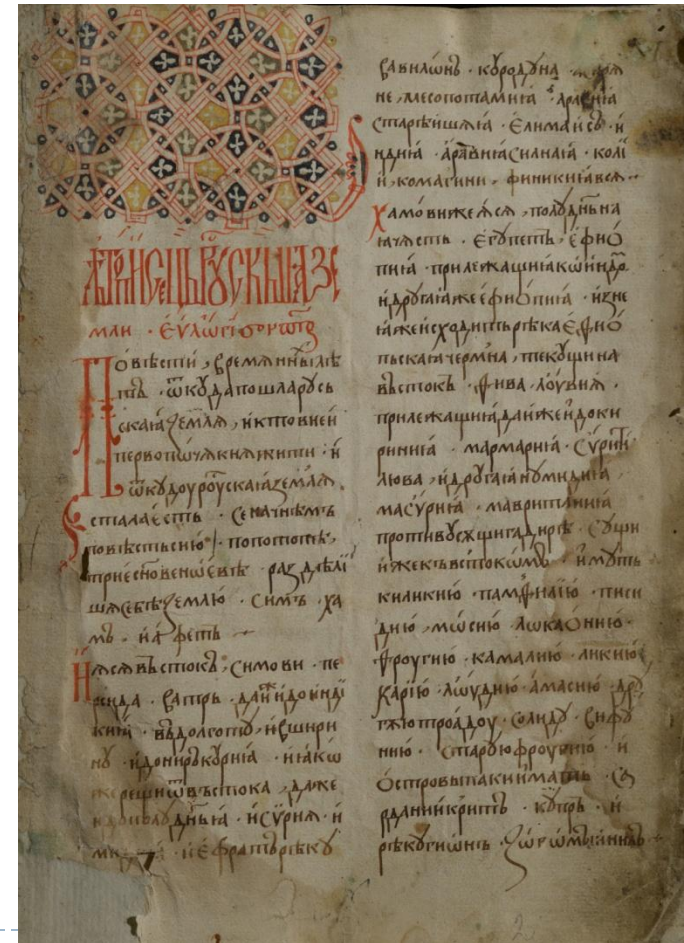 лѣтописець рускыи а зе
мли · еѵлѡгисоѡ҃тѡ
Повѣсти , времянныⷯ лѣ
тъ · ѿкуда пошла русь
скаꙗ земля , и кто в неи
первѣ почя княжити · и
ѿкудоу роускаꙗ земля
стала есть · Се начнемъ
повѣсть сию · по потопѣ ,
трие с҃нове ноеве · раздѣлі
ша себѣ землю · Симъ · ха
мъ · и афетъ ~
И яся въстокъ · симови · пе
рсида · ватрь · даⷤ и до инді
киꙗ · въ долготу , и въ шири
ну · и до нирокурия · и ꙗкѡ
же рещи ѿ въстока , даже
и до полуднѧ · и сурия · и
· и ефратъ рѣку
вавилѡнъ · кордуна
не , месопотамиꙗ · аравиа
старѣишаꙗ · елимаисъ · и
ндиꙗ · аравиа силнаꙗ · колі
и , комагини · финикиꙗ вся ~
Хамови же яся , полуднена
ꙗ чясть · египетъ , ефиѻ
пиꙗ · прилежащиꙗ ко индо ·
и другаꙗ же ефиѻпиꙗ · из не
ꙗже исходить рѣка ефиѻ
пьскаꙗ чермна , текущи на
въстокъ · ѳива · лоувия ·
прилежащиꙗ даже и до ки
ринигꙗ · мармариꙗ · сурити
ливоа , и другаꙗ нумидиꙗ ·
масуриꙗ · мавританиꙗ
противу сущи гадирѣ · сущи
иⷨ же къ въстокомъ · имуть
киликию · памѳилію · писи
дию , мѡсию · лѡкаѻнию ·
фроугию · камалию · ликию
карію · лѡудию · амасию · дру
гую троадоу · солиду · вифу
нию · старую фроугию · и
ѻстровы таки имать · са
рданиⷤ крить · купръ · и
рѣку гиѡнъ · зовомыи нилъ